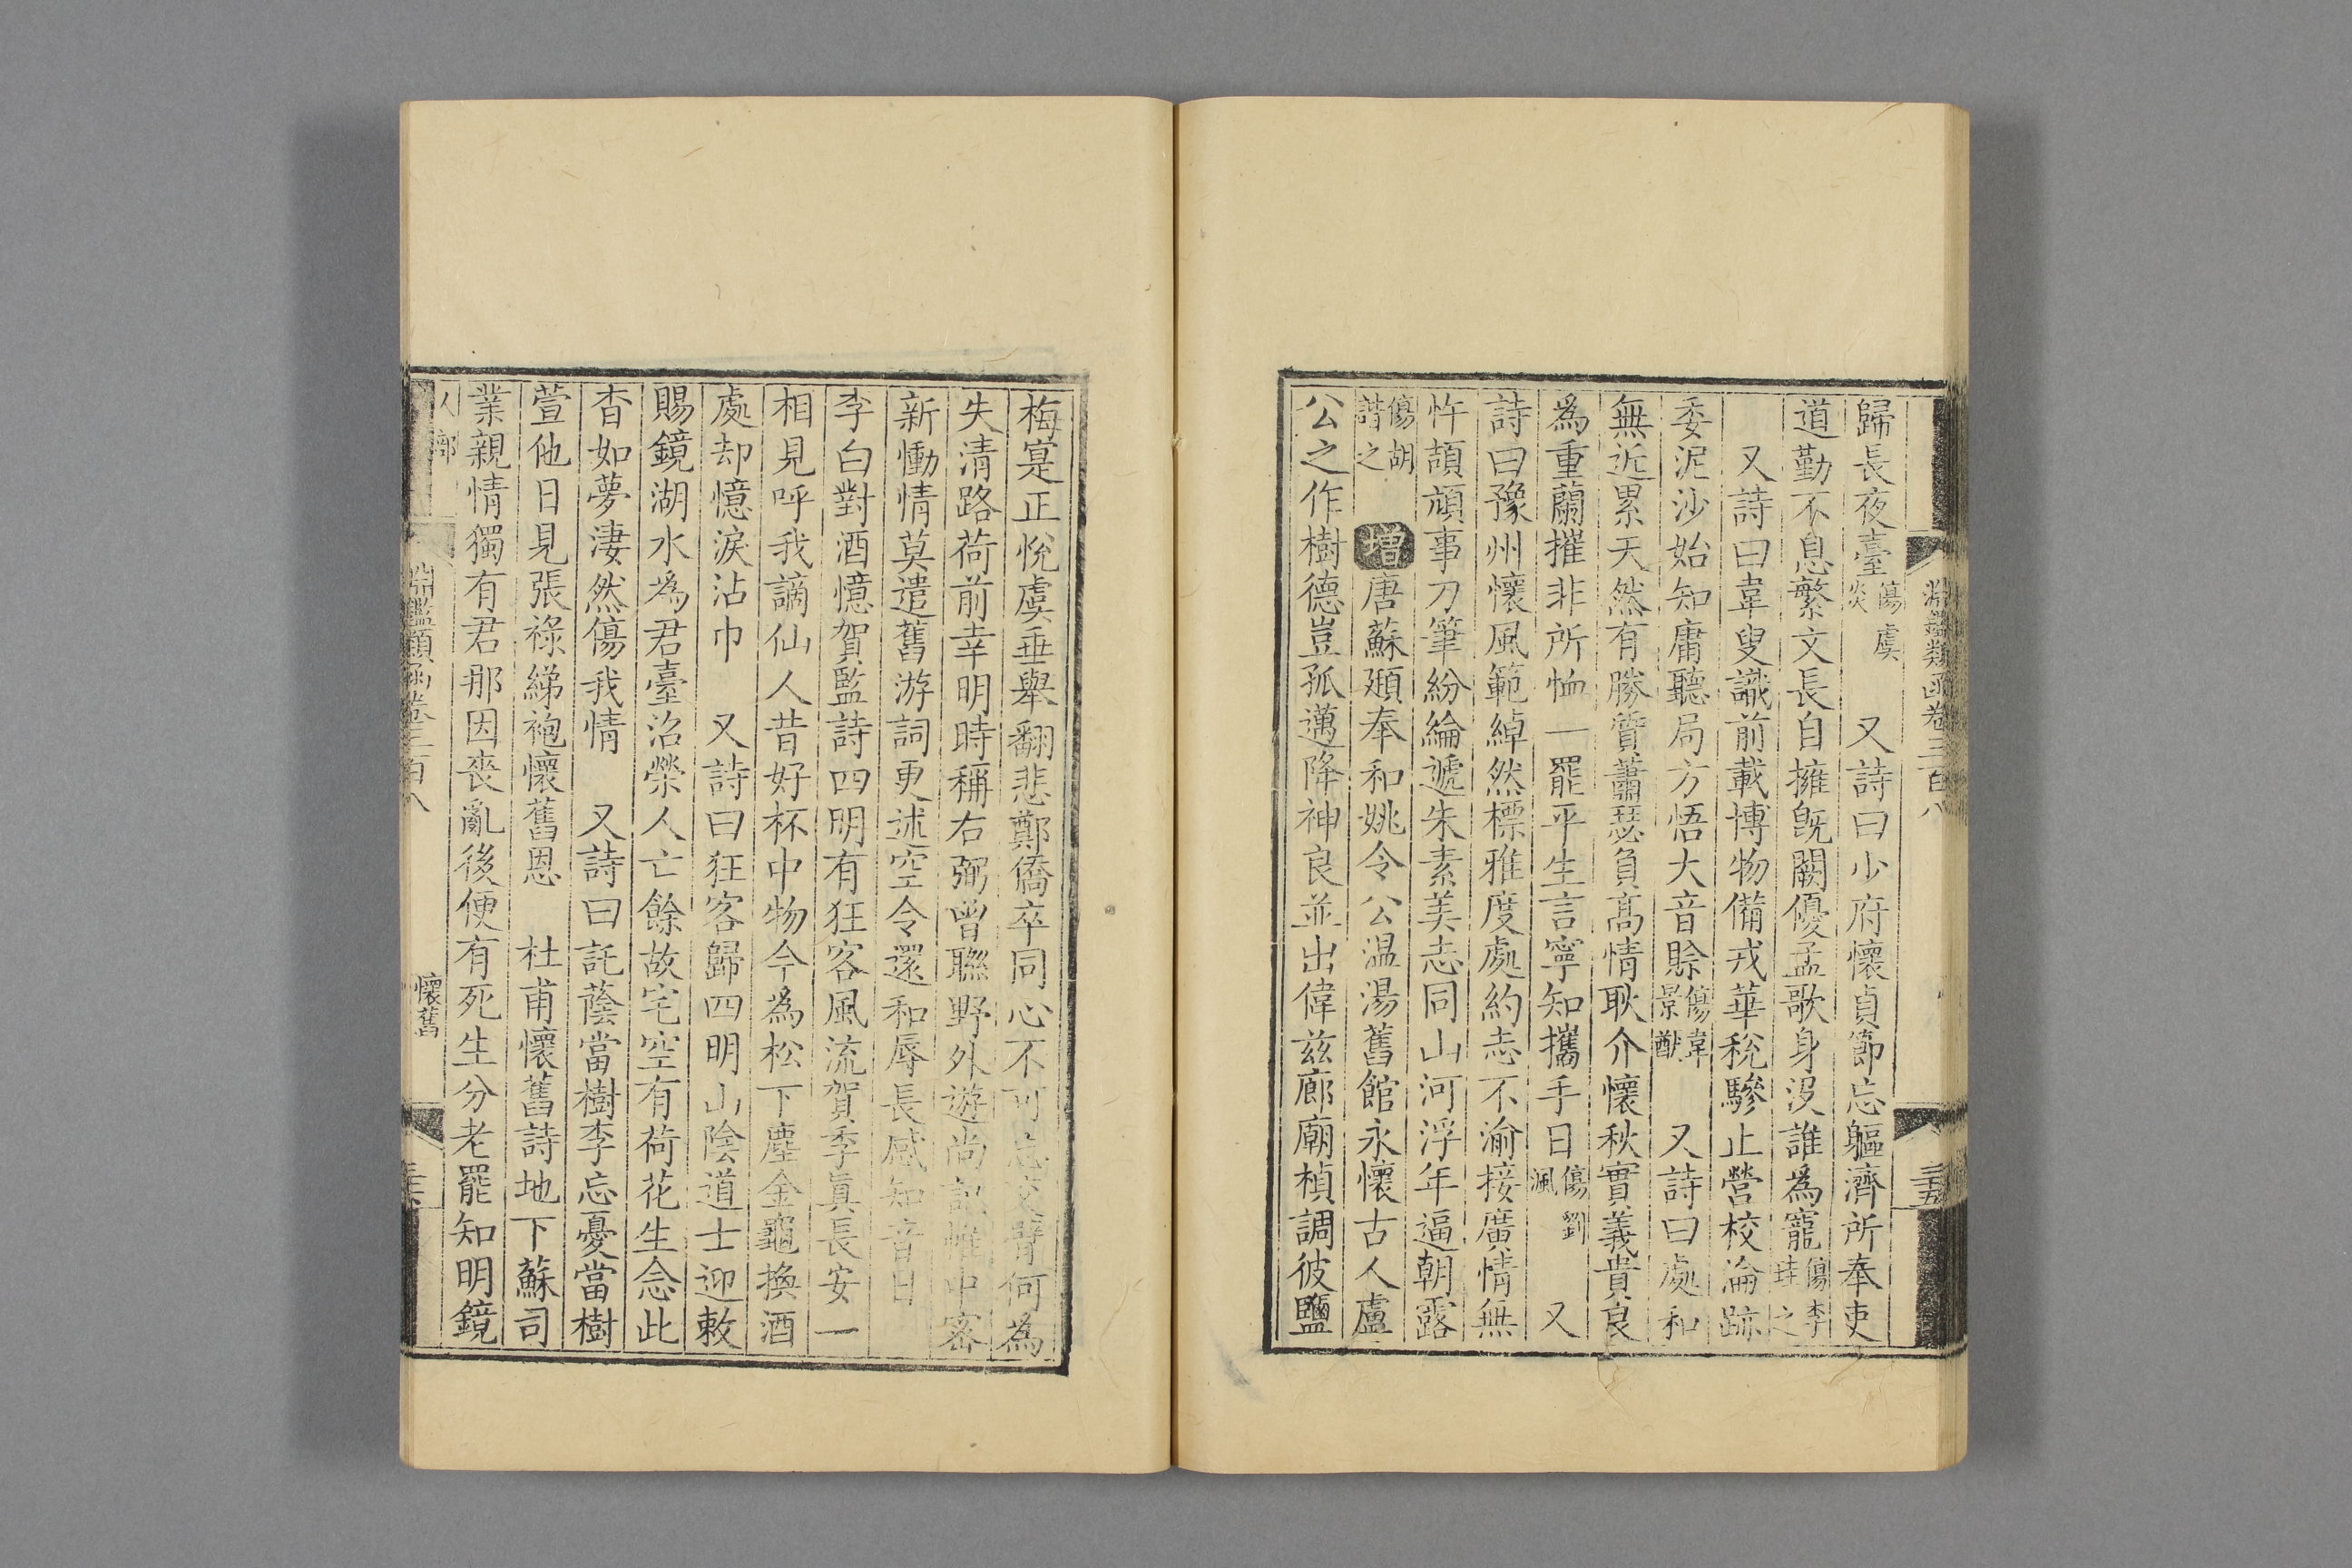 淵鑑類函卷三百八
三五
歸長夜臺傷虞炎 又詩曰少府懷貞節忘軀濟所奉吏
道勤不息繁文長自擁旣闕優孟歌身沒誰為寵傷李珪之
又詩曰韋叟識前載博物備戎華稅驂止營校淪跡
委泥沙始知庸聽局方悟大音賒傷韋景猷 又詩曰處和
無近累天然有勝質蕭瑟負高情耿介懷秋實義貴良
為重蘭摧非所恤一罷平生言寧知攜手日傷劉渢 又
詩曰豫州懷風範綽然標雅度處約志不渝接廣情無
忤頡頏事刀筆紛綸遞朱素美志同山河浮年逼朝露
傷胡諧之 增唐蘇頲奉和姚令公温湯舊館永懷古人盧
公之作樹德豈孤邁降神良並出偉兹廊廟楨調彼鹽
梅寔正悅虞垂舉翻悲鄭僑卒同心不可忘交臂何為
失清路荷前幸明時稱右弼曾聯野外遊尚記帷中密
新慟情莫遣舊游詞更述空令還和辱長感知音日
李白對酒憶賀監詩四明有狂客風流賀季眞長安一
相見呼我謫仙人昔好杯中物今為松下塵金龜換酒
處却憶淚沾巾 又詩曰狂客歸四明山陰道士迎敕
賜鏡湖水為君臺沼榮人亡餘故宅空有荷花生念此
杳如夢淒然傷我情 又詩曰託蔭當樹李忘憂當樹
萱他日見張祿綈袍懷舊恩 杜甫懷舊詩地下蘇司
業親情獨有君那因喪亂後便有死生分老罷知明鏡
人部
淵鑑類函卷三百八
懷舊